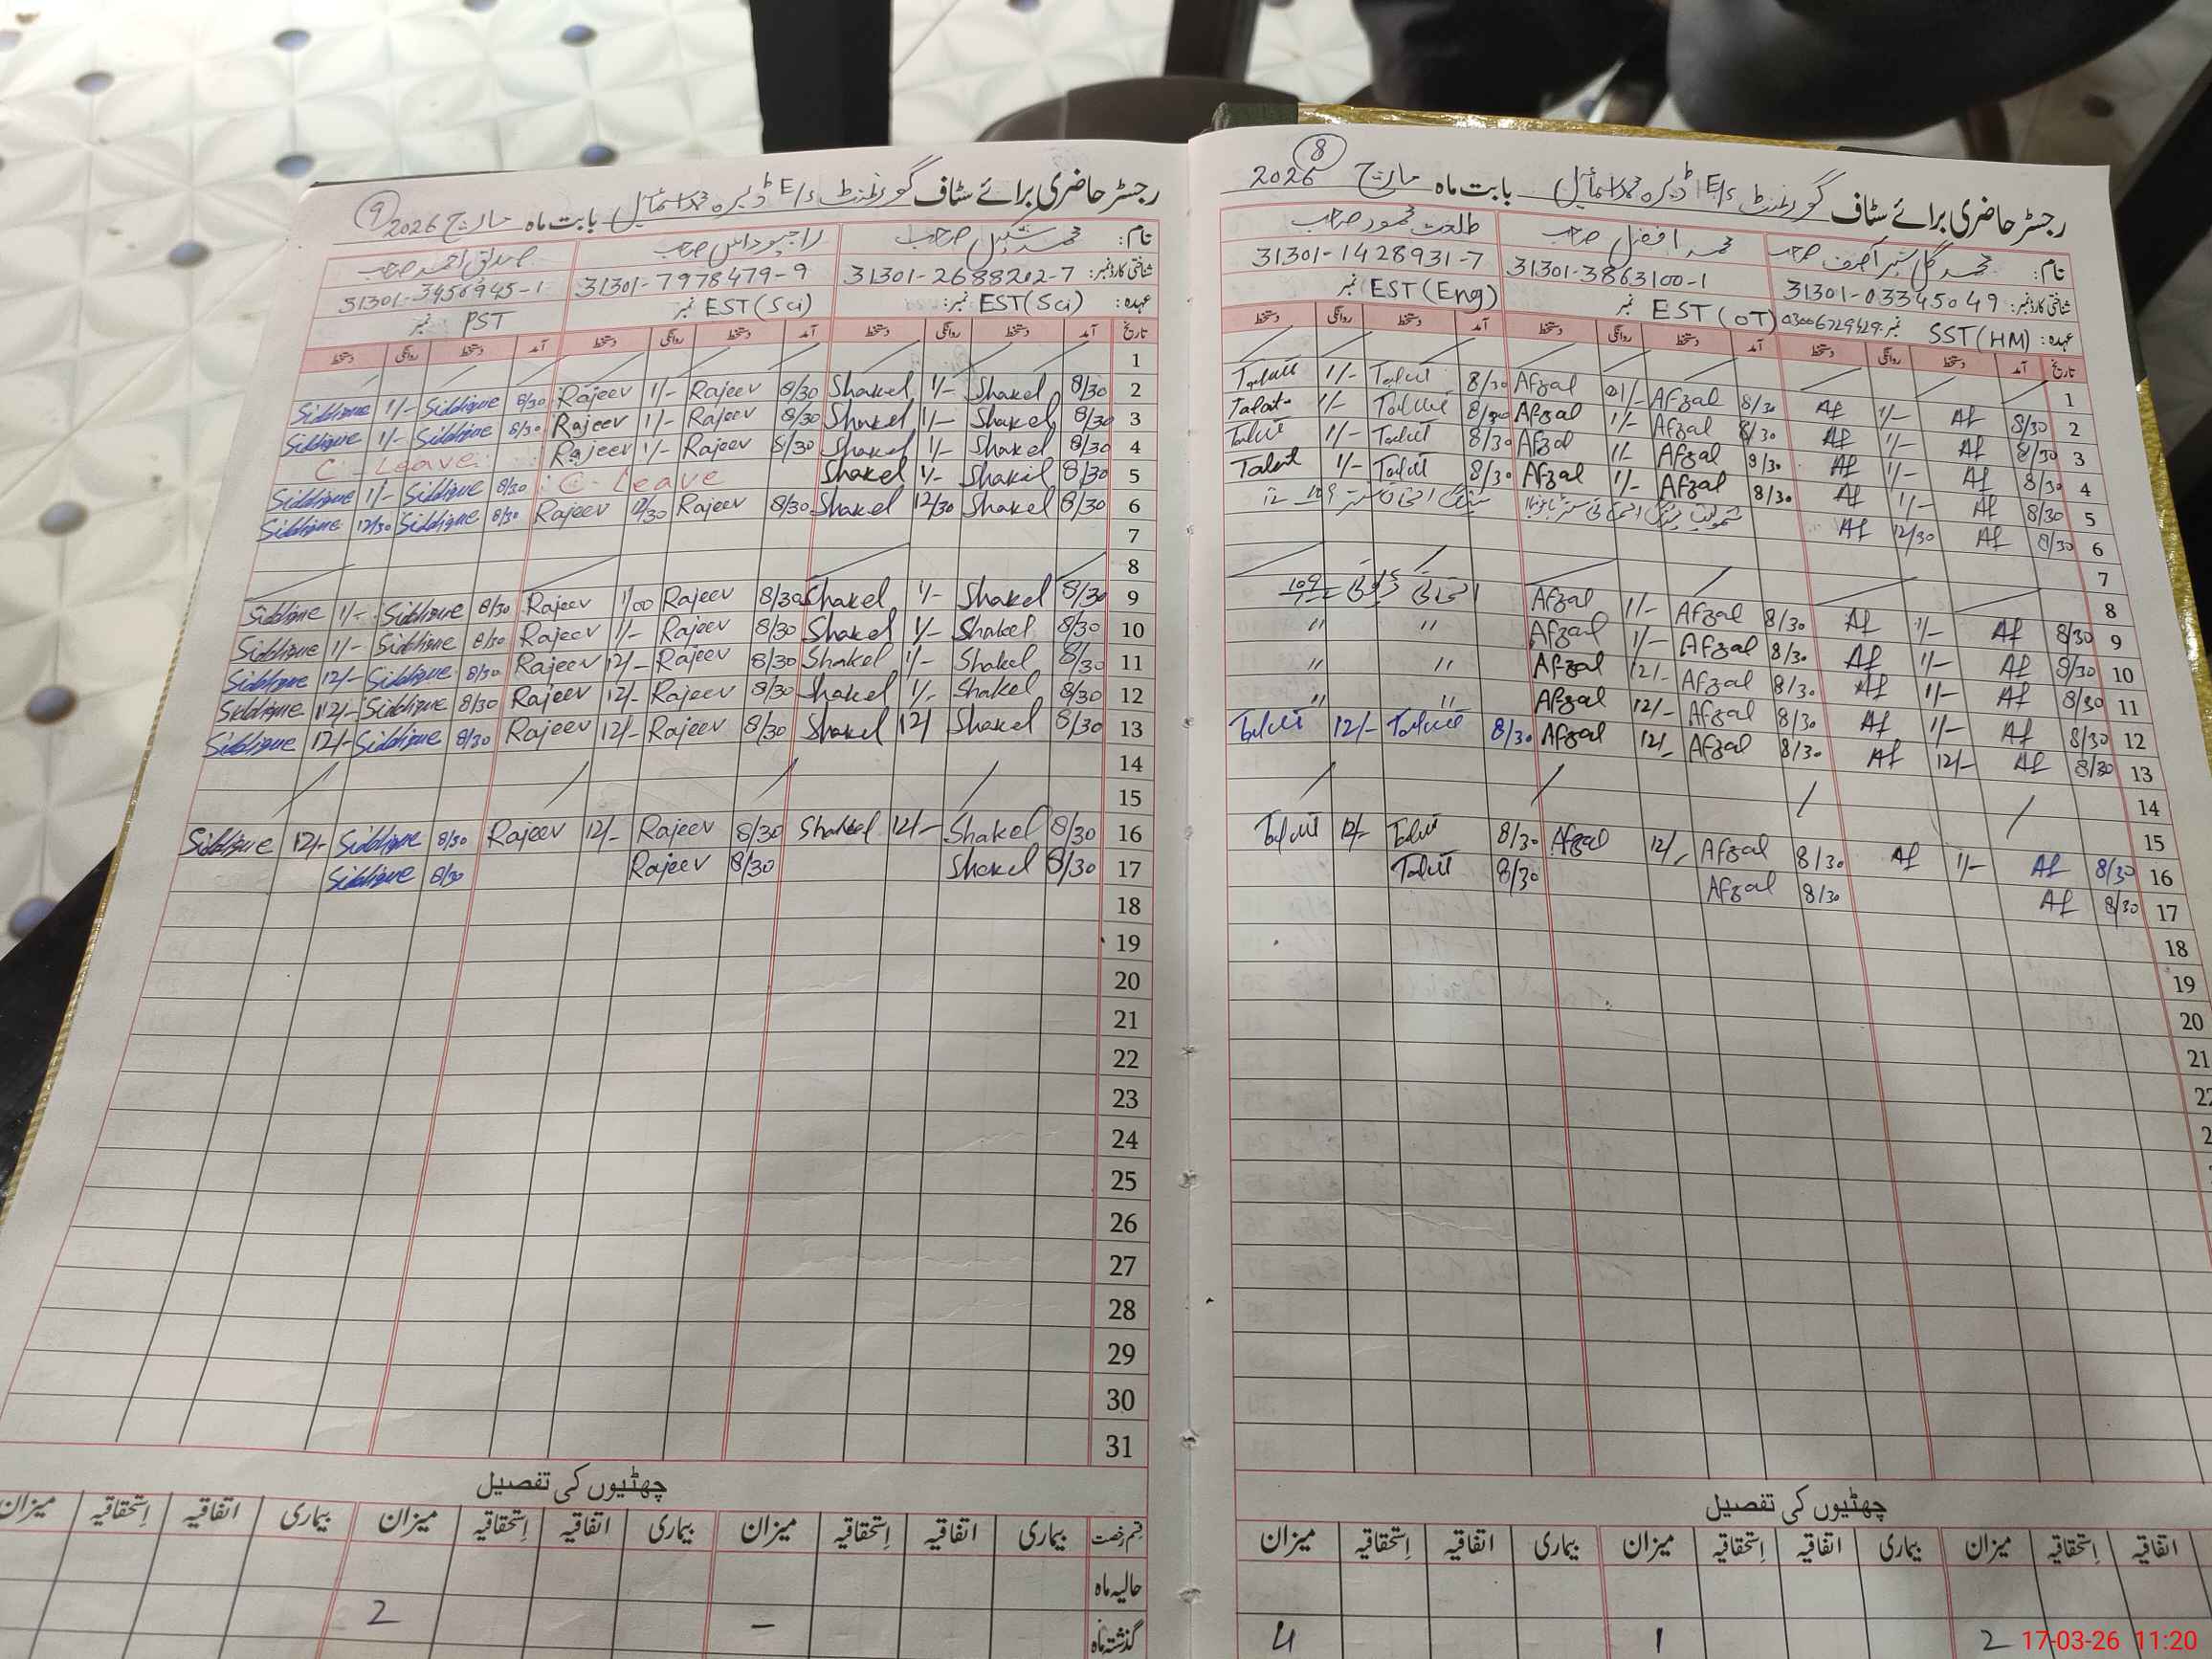 رجسٹر حاضری برائے سٹاف گورنمنٹ E/S ڈیرہ محمد اسماعیل بابت ماہ مارچ 2026
8
نام: محمد گل شیر آصف صاحب محمد افضل صاحب طلعت محمود صاحب
شناختی کارڈ نمبر: 31301-0334504 9 31301-3863100-1 31301-1428931-7
عہدہ: SST (HM) نمبر: 03006729429 EST (OT) نمبر EST (Eng) نمبر
تاریخ آمد دستخط روانگی دستخط آمد دستخط روانگی دستخط آمد دستخط روانگی دستخط
1
2 8/30 Af 1/- Af 8/30 Afzal 1/- Afzal 8/30 Talat 1/- Talat
3 8/30 Af 1/- Af 8/30 Afzal 1/- Afzal 8/30 Talat 1/- Talat
4 8/30 Af 1/- Af 8/30 Afzal 1/- Afzal 8/30 Talat 1/- Talat
5 8/30 Af 1/- Af 8/30 Afzal 1/- Afzal 8/30 Talat 1/- Talat
6 8/30 Af 12/30 Af
7
8
9 8/30 Af 1/- Af 8/30 Afzal 1/- Afzal امتحانی ڈیوٹی 109
10 8/30 Af 1/- Af 8/30 Afzal 1/- Afzal " "
11 8/30 Af 1/- Af 8/30 Afzal 12/- Afzal " "
12 8/30 Af 1/- Af 8/30 Afzal 12/- Afzal " "
13 8/30 Af 12/- Af 8/30 Afzal 12/- Afzal 8/30 Talat 12/- Talat
14
15
16 8/30 Af 1/- Af 8/30 Afzal 12/- Afzal 8/30 Talat 12/- Talat
17 8/30 Af 8/30 Afzal 8/30 Talat
18
19
20
21
22
چھٹیوں کی تفصیل
اتفاقیہ اِستحقاقیہ میزان بیماری اتفاقیہ اِستحقاقیہ میزان بیماری اتفاقیہ اِستحقاقیہ میزان
2 1 4
رجسٹر حاضری برائے سٹاف گورنمنٹ E/S ڈیرہ محمد اسماعیل بابت ماہ مارچ 2026
9
نام: محمد شکیل صاحب راجیو داس صاحب صدیق احمد صاحب
شناختی کارڈ نمبر: 31301-2688202-7 31301-7978479-9 31301-3456945-1
عہدہ: EST (Sci) نمبر: EST (Sci) نمبر PST نمبر
تاریخ آمد دستخط روانگی دستخط آمد دستخط روانگی دستخط آمد دستخط روانگی دستخط
1
2 8/30 Shakel 1/- Shakel 8/30 Rajeev 1/- Rajeev 8/30 Siddique 1/- Siddique
3 8/30 Shakel 1/- Shakel 8/30 Rajeev 1/- Rajeev 8/30 Siddique 1/- Siddique
4 8/30 Shakel 1/- Shakel 8/30 Rajeev 1/- Rajeev C - Leave
5 8/30 Shakel 1/- Shakel C - Leave 8/30 Siddique 1/- Siddique
6 8/30 Shakel 12/30 Shakel 8/30 Rajeev 12/30 Rajeev 8/30 Siddique 12/30 Siddique
7
8
9 8/30 Shakel 1/- Shakel 8/30 Rajeev 1/00 Rajeev 8/30 Siddique 1/- Siddique
10 8/30 Shakel 1/- Shakel 8/30 Rajeev 1/- Rajeev 8/30 Siddique 1/- Siddique
11 8/30 Shakel 1/- Shakel 8/30 Rajeev 12/- Rajeev 8/30 Siddique 12/- Siddique
12 8/30 Shakel 1/- Shakel 8/30 Rajeev 12/- Rajeev 8/30 Siddique 12/- Siddique
13 8/30 Shakel 12/ Shakel 8/30 Rajeev 12/- Rajeev 8/30 Siddique 12/- Siddique
14
15
16 8/30 Shakel 12/- Shakeel 8/30 Rajeev 12/- Rajeev 8/30 Siddique 12/- Siddique
17 8/30 Shakel 8/30 Rajeev 8/30 Siddique
18
19
20
21
22
23
24
25
26
27
28
29
30
31
چھٹیوں کی تفصیل
قسم رخصت بیماری اتفاقیہ اِستحقاقیہ میزان بیماری اتفاقیہ اِستحقاقیہ میزان بیماری اتفاقیہ اِستحقاقیہ میزان
حالیہ ماہ
گذشتہ ماہ - 2
17-03-26 11:20